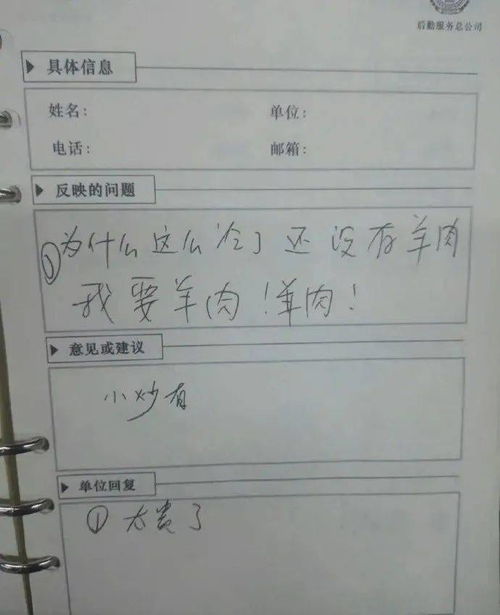 后勤服务总公司
具体信息
姓名: 单位:
电话: 邮箱:
反映的问题
①为什么这么冷了还没有羊肉
我要羊肉!羊肉!
意见或建议
小炒有
单位回复
① 太贵了